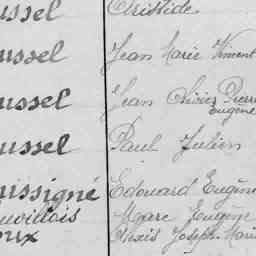 ussel Aristide
ussel Jean Marie Vincent
ussel Jean Olivier Pierre
Eugène
ussel Paul Julien
ussigné Edouard Eugène
uvillois Marc Eugène
oux Alexis Joseph Marie